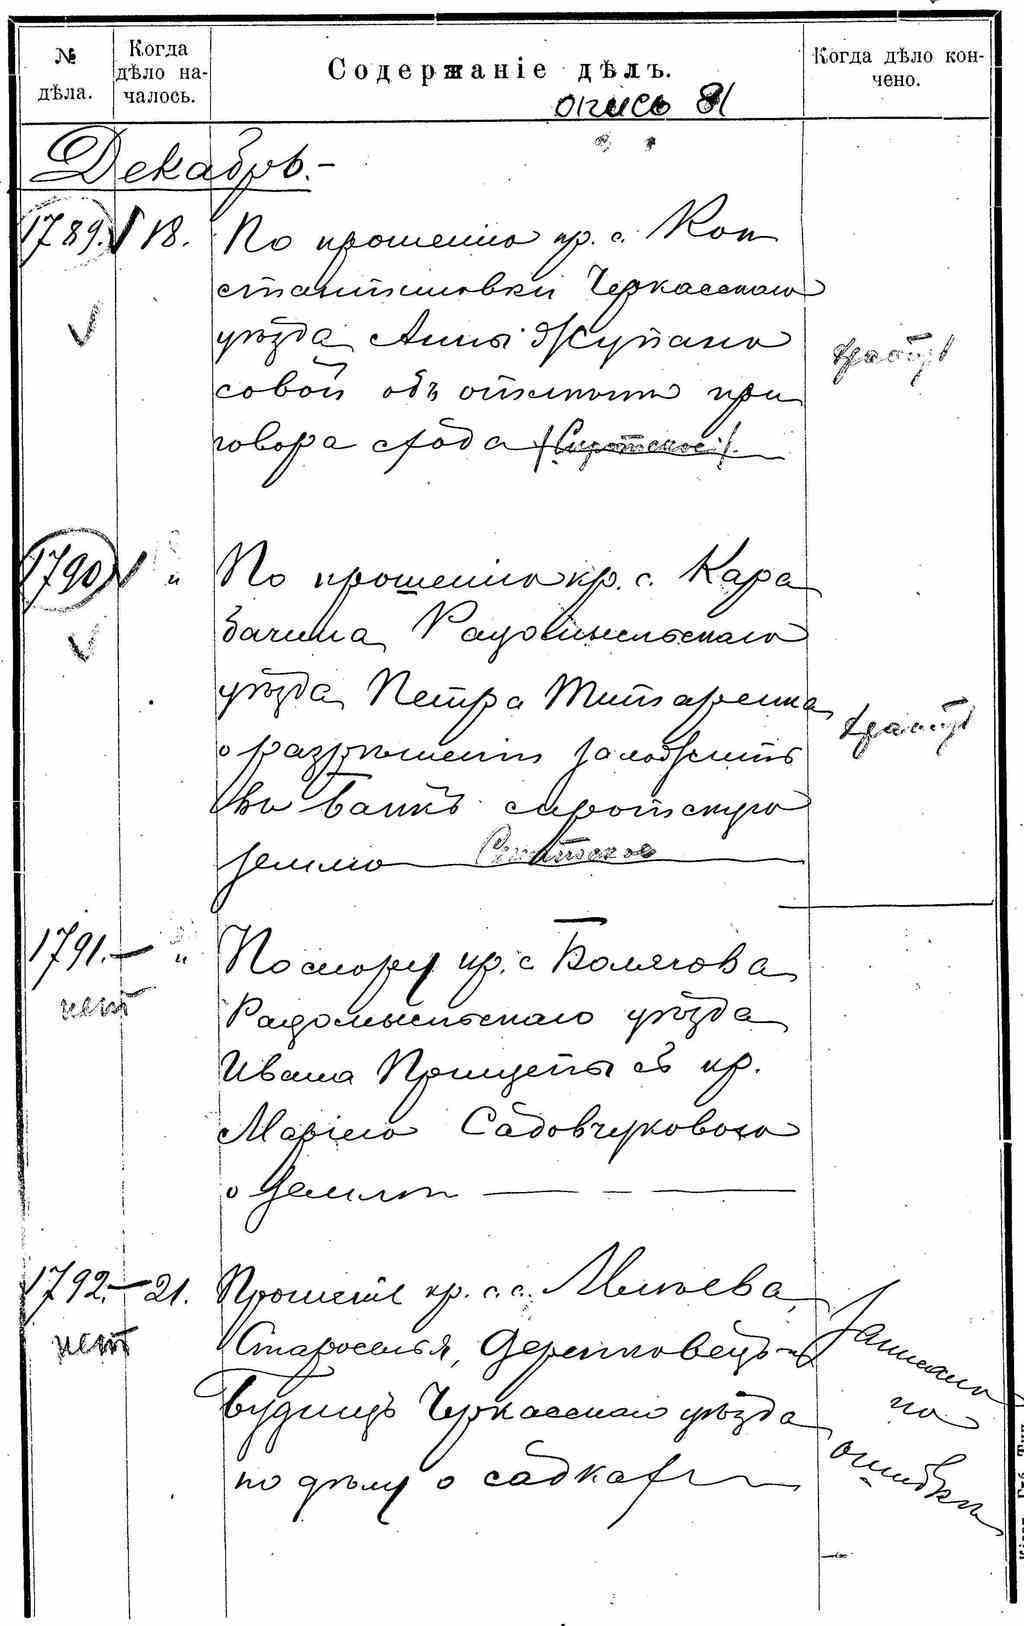 № дѣла.
Когда дѣло на-
чалось.
Содержаніе дѣлъ.
Когда дѣло кон-
чено.
опись 81
Декабрь.-
1789. 18. По прошенію кр. с. Кон
стантиновки Черкасскаго
уѣзда Анны Жупано
совой объ отмѣнѣ при
говора схода /Сиротское/.
1790 " По прошенію кр. с. Кара
бачина Радомысльскаго
уѣзда Петра Титаренка
о разрѣшеніи заложить
въ банкъ сиротскую
землю Сиротское
1791.- " По спору кр. с.
нет
Радомысльскаго уѣзда
Ивана Прищепы съ кр.
Маріею Садовчуковою
о землѣ — - —
1792.- 21. Прошеніе кр. с.с. Мліева,
нет
Староселья, Деренковецъ и
Будищъ Черкасскаго уѣзда
по дѣлу о садкахъ
Записано
по
ошибкѣ